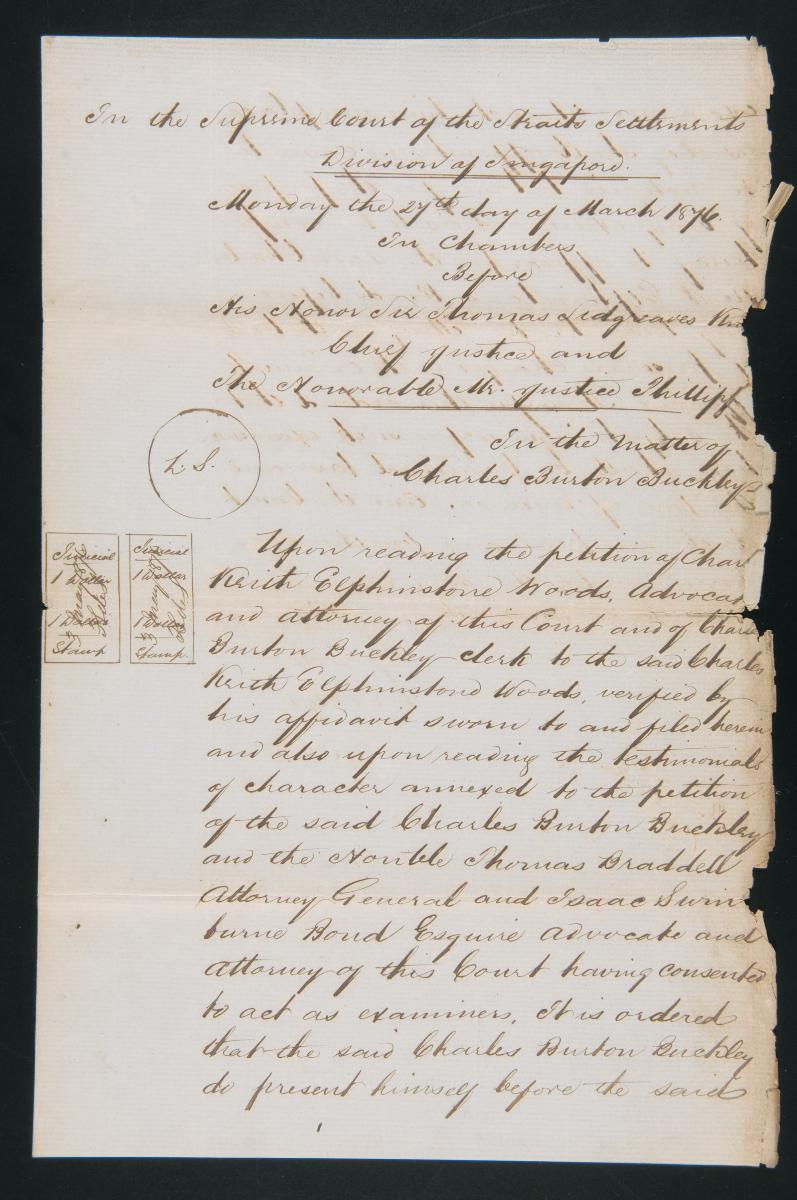 In the Supreme Court of the Straits Settlements
Division of Singapore.
Monday the 27th day of March 1876.
In Chambers
Before
His Honor Sir Thomas Sidgreaves Kn
Chief Justice and
The Honorable Mr. Justice Phillipp
In the Matter of
Charles Burton Buckley
L. S.
Judicial
1 Dollar
1 Dollar
Stamp
Judicial
1 Dollar
1 Dollar
Stamp.
Upon reading the petition of Char
Keith Elphinstone Woods, Advocat
and attorney of this Court and of Charl
Burton Buckley clerk to the said Charles
Keith Elphinstone Woods, verified by
his affidavit sworn to and filed herein
and also upon reading the testimonials
of character annexed to the petition
of the said Charles Burton Buckley
and the Honble Thomas Braddell
Attorney General and Isaac Swin
burne Bond Esquire Advocate and
Attorney of this Court having consented
to act as examiners, It is ordered
that the said Charles Burton Buckley
do present himself before the said